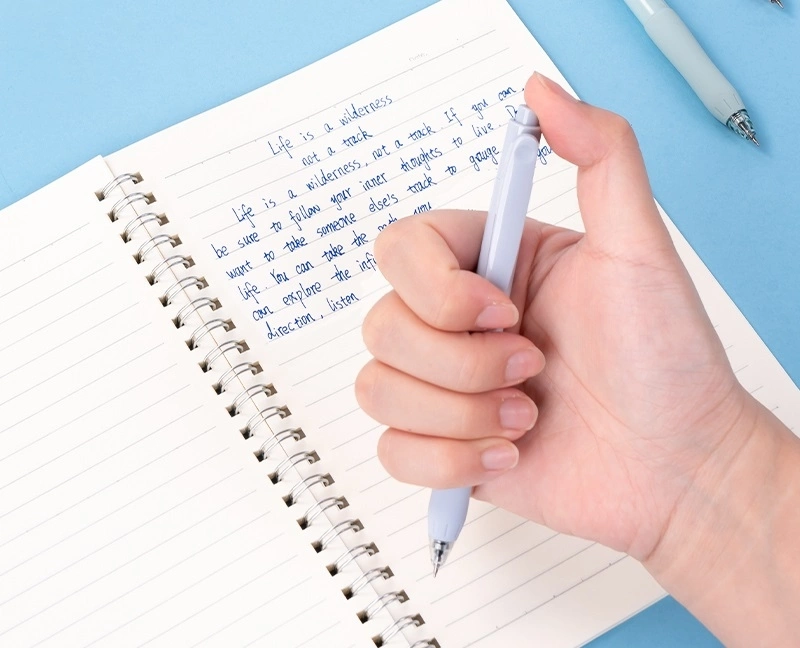 Life is a wilderness
not a track
Life is a wilderness, not a track. If you can,
be sure to follow your inner thoughts to live.
want to take someone else's track to grauge you
life. You can take the path you
can explore the
direction, listen